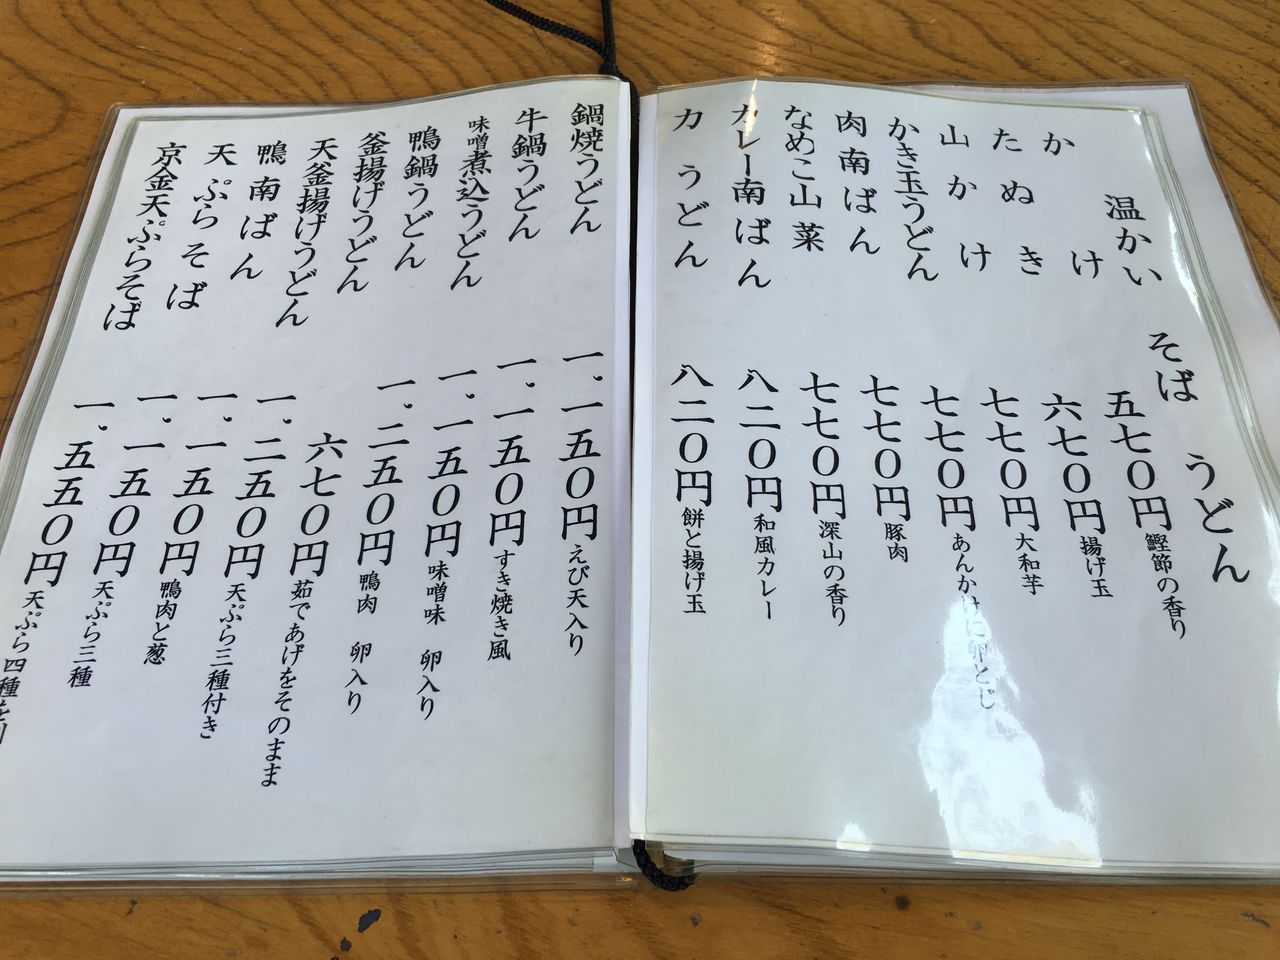 温かい そば うどん
かけ 五七〇円 鰹節の香り
たぬき 六七〇円 揚げ玉
山かけ 七七〇円 大和芋
かき玉うどん 七七〇円 あんかけに卵とじ
肉南ばん 七七〇円 豚肉
なめこ山菜 七七〇円 深山の香り
カレー南ばん 八二〇円 和風カレー
力うどん 八二〇円 餅と揚げ玉
鍋焼うどん 一.一五〇円 えび天入り
牛鍋うどん 一.一五〇円 すき焼き風
味噌煮込うどん 一.一五〇円 味噌味 卵入り
鴨鍋うどん 一.二五〇円 鴨肉 卵入り
釜揚げうどん 六七〇円 茹であげをそのまま
天釜揚げうどん 一.二五〇円 天ぷら三種付き
鴨南ばん 一.一五〇円 鴨肉と葱
天ぷらそば 一.一五〇円 天ぷら三種
京金天ぷらそば 一.五五〇円 天ぷら四種を